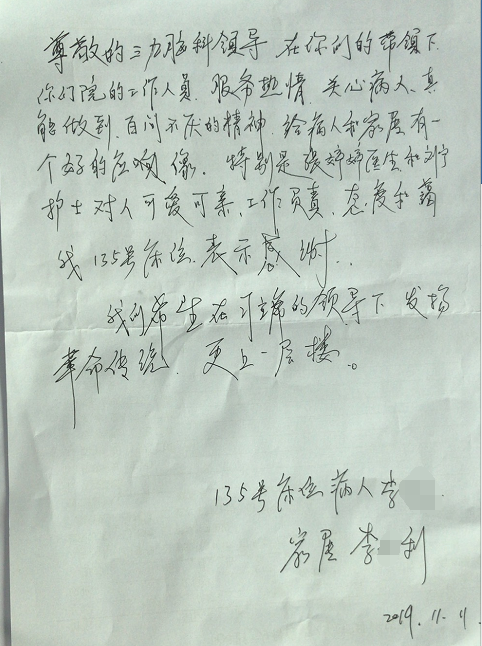 尊敬的三九脑科领导 在你们的带领下
你们院的工作人员.服务热情.关心病人.真
能做到.百问不厌的精神.给病人和家属有一
个好的应响像.特别是张婷婷医生和刘宁
护士对人可爱可亲.工作负责.态度和蔼
我135号床位.表示感谢..
我们希 在习主席的领导下 发扬
革命传统.更上一层楼。
135号床位病人李
家属 李 利
2019.11.11